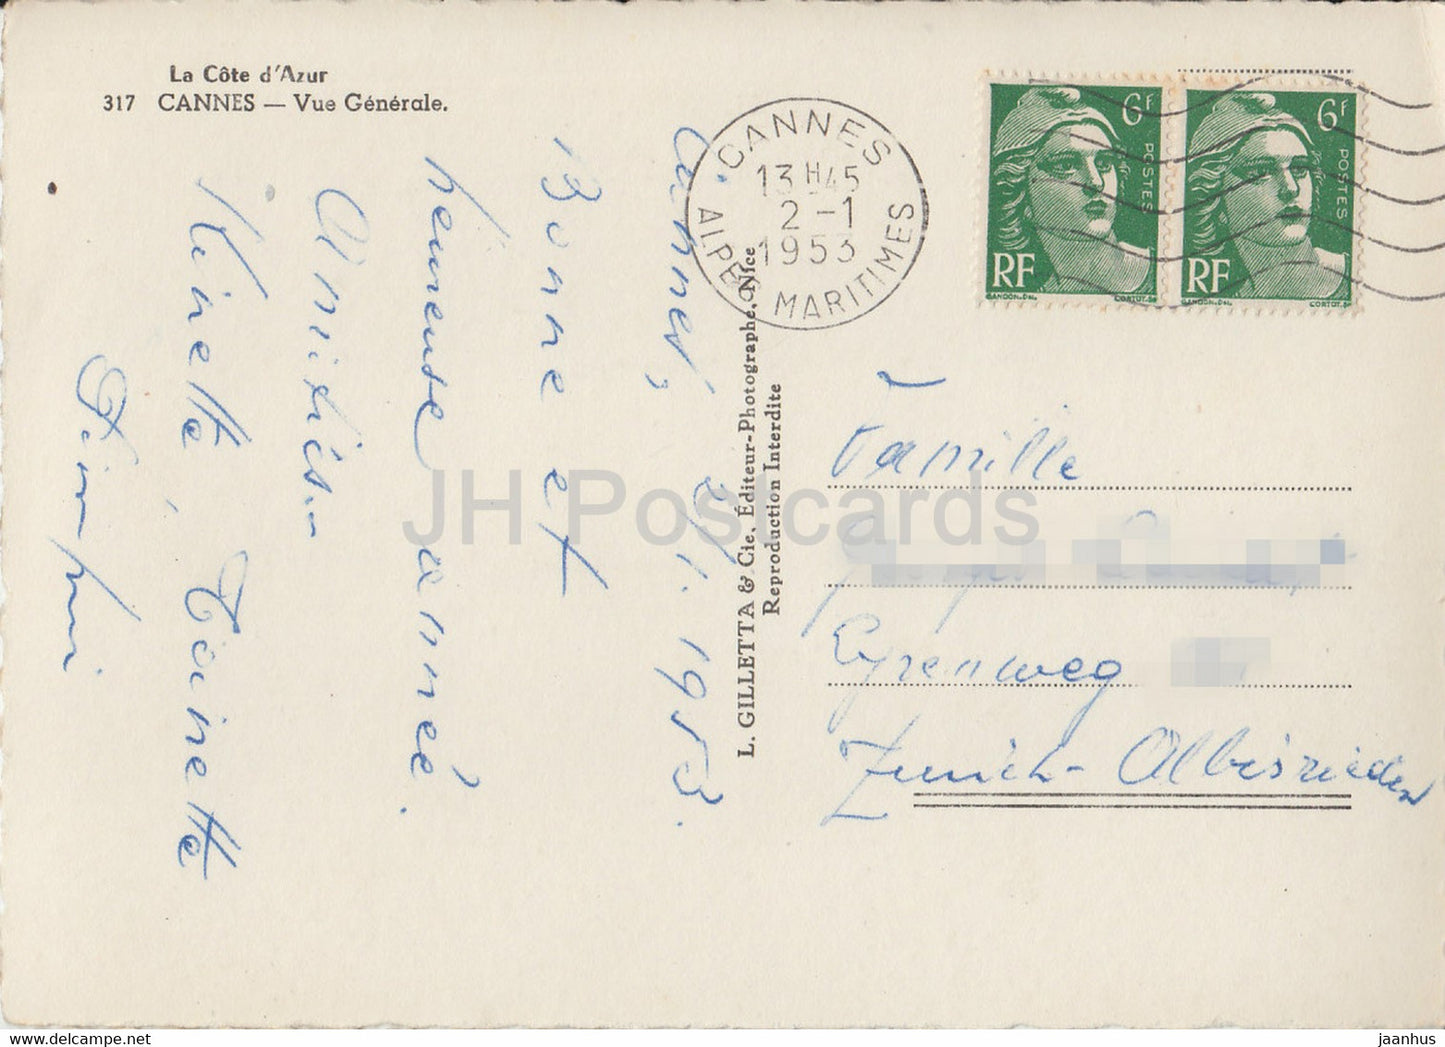 La Côte d'Azur
317 CANNES — Vue Générale.
CANNES
13 H 45
2 - 1
1953
ALPES MARITIMES
6F
POSTES
RF
GANDON.DEL.
CORTOT.SC
6F
POSTES
RF
GANDON.DEL.
CORTOT.SC
Cannes, 2/1.1953.
Bonne et
heureuse année.
Amitiés
Kinette, Toinette
L. GILLETTA & Cie, Éditeur-Photographe, Nice
Reproduction Interdite
Famille
Zurich-Albisrieden
JH Postcards
www.delcampe.net
jaanhus